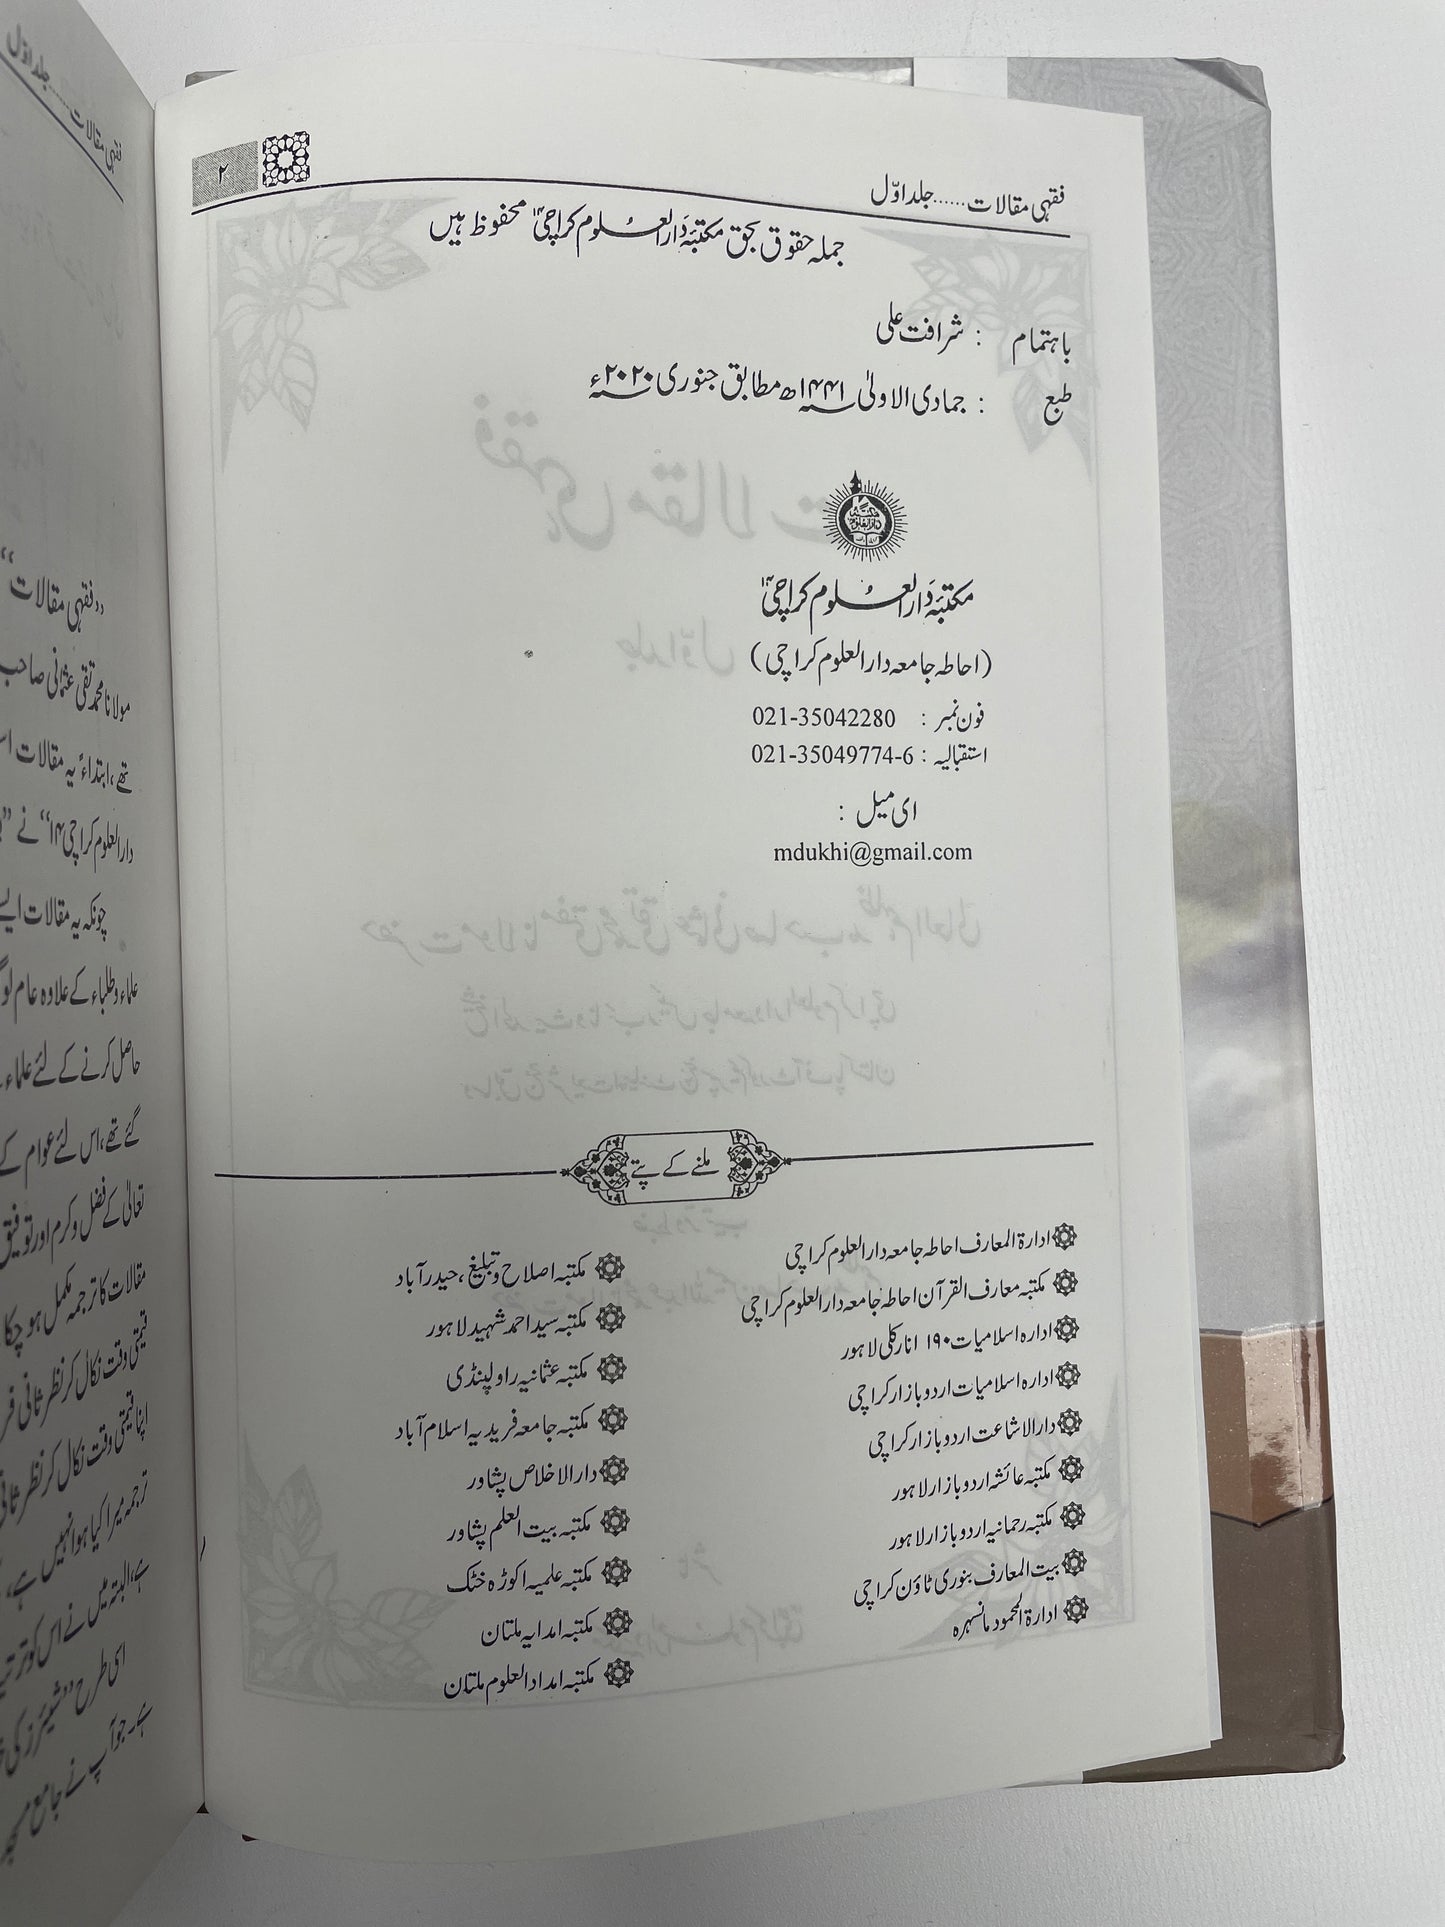 فقہی مقالات......جلد اوّل
۲
جملہ حقوق بحق مکتبہ دارالعلوم کراچی محفوظ ہیں
باہتمام : شرافت علی
طبع : جمادی الاولیٰ ۱۴۴۱ھ مطابق جنوری ۲۰۲۰ء
مکتبہ دارالعلوم کراچی
(احاطہ جامعہ دارالعلوم کراچی)
فون نمبر : 021-35042280
استقبالیہ : 021-35049774-6
ای میل :
mdukhi@gmail.com
ملنے کے پتے
ادارۃ المعارف احاطہ جامعہ دارالعلوم کراچی
مکتبہ معارف القرآن احاطہ جامعہ دارالعلوم کراچی
ادارہ اسلامیات ۱۹۰ انار کلی لاہور
ادارہ اسلامیات اردو بازار کراچی
دارالاشاعت اردو بازار کراچی
مکتبہ عائشہ اردو بازار لاہور
مکتبہ رحمانیہ اردو بازار لاہور
بیت المعارف بنوری ٹاؤن کراچی
ادارۃ المحمود مانسہرہ
مکتبہ اصلاح و تبلیغ، حیدرآباد
مکتبہ سید احمد شہید لاہور
مکتبہ عثمانیہ راولپنڈی
مکتبہ جامعہ فریدیہ اسلام آباد
دارالاخلاص پشاور
مکتبہ بیت العلم پشاور
مکتبہ علمیہ اکوڑہ خٹک
مکتبہ امدایہ ملتان
مکتبہ امداد العلوم ملتان
فقہی مقالات......جلد اوّل
”فقہی مقالات“
مولانا محمد تقی عثمانی صاحب
تھے، ابتداءً یہ مقالات
دارالعلوم کراچی ۱۴“ نے
چونکہ یہ مقالات ایسے
علماء و طلباء کے علاوہ عام
حاصل کرنے کے لئے علماء
گئے تھے، اس لئے عوام کے
تعالیٰ کے فضل و کرم اور توفیق
مقالات کا ترجمہ مکمل ہو چکا
قیمتی وقت نکال کر نظر ثانی
اپنا قیمتی وقت نکال کر نظر ثانی
ترجمہ میرا کیا ہوا نہیں ہے،
ہے، البتہ میں نے اس کو
اسی طرح ”شیئرز کی
ہے۔ جو آپ نے جامع